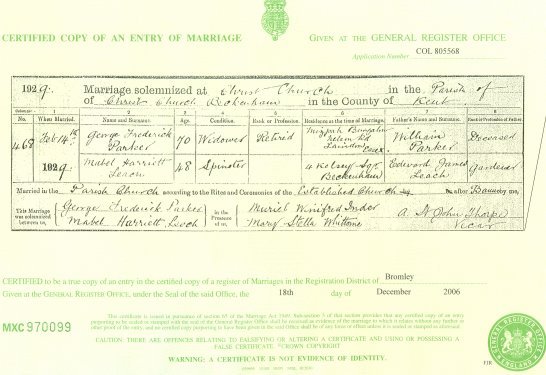 CERTIFIED COPY OF AN ENTRY OF MARRIAGE
GIVEN AT THE GENERAL REGISTER OFFICE
Application Number COL 805568
1929. Marriage solemnized at Christ Church in the Parish of
of Christ Church Beckenham in the County of Kent
No. When Married. Name and Surname. Age. Condition. Rank or Profession. Residence at the time of Marriage. Father's Name and Surname. Rank or Profession of Father.
468 Feb 14th 1929 George Frederick Parker 70 Widower Retired Laindon Essex William Parker Deceased
Mabel Harriett Leach 48 Spinster 4 Kelsey Sqr Beckenham Edward James Leach Gardener
Married in the Parish Church according to the Rites and Ceremonies of the Established Church by after Banns by me,
This Marriage was solemnized between us, George Frederick Parker Mabel Harriett Leach in the Presence of us, Muriel Winifred Mary Stella A. St John Thorpe Vicar
CERTIFIED to be a true copy of an entry in the certified copy of a register of Marriages in the Registration District of Bromley
Given at the GENERAL REGISTER OFFICE, under the Seal of the said Office, the 18th day of December 2006
MXC 970099
This certificate is issued in pursuance of section 65 of the Marriage Act 1949. Sub-section 3 of that section provides that any certified copy of an entry
purporting to be sealed or stamped with the seal of the General Register Office shall be received as evidence of the marriage to which it relates without any further or
other proof of the entry, and no certified copy purporting to have been given in the said Office shall be of any force or effect unless it is sealed or stamped as aforesaid.
CAUTION: THERE ARE OFFENCES RELATING TO FALSIFYING OR ALTERING A CERTIFICATE AND USING OR POSSESSING A
FALSE CERTIFICATE. ©CROWN COPYRIGHT
WARNING: A CERTIFICATE IS NOT EVIDENCE OF IDENTITY.
GENERAL REGISTER OFFICE
ENGLAND